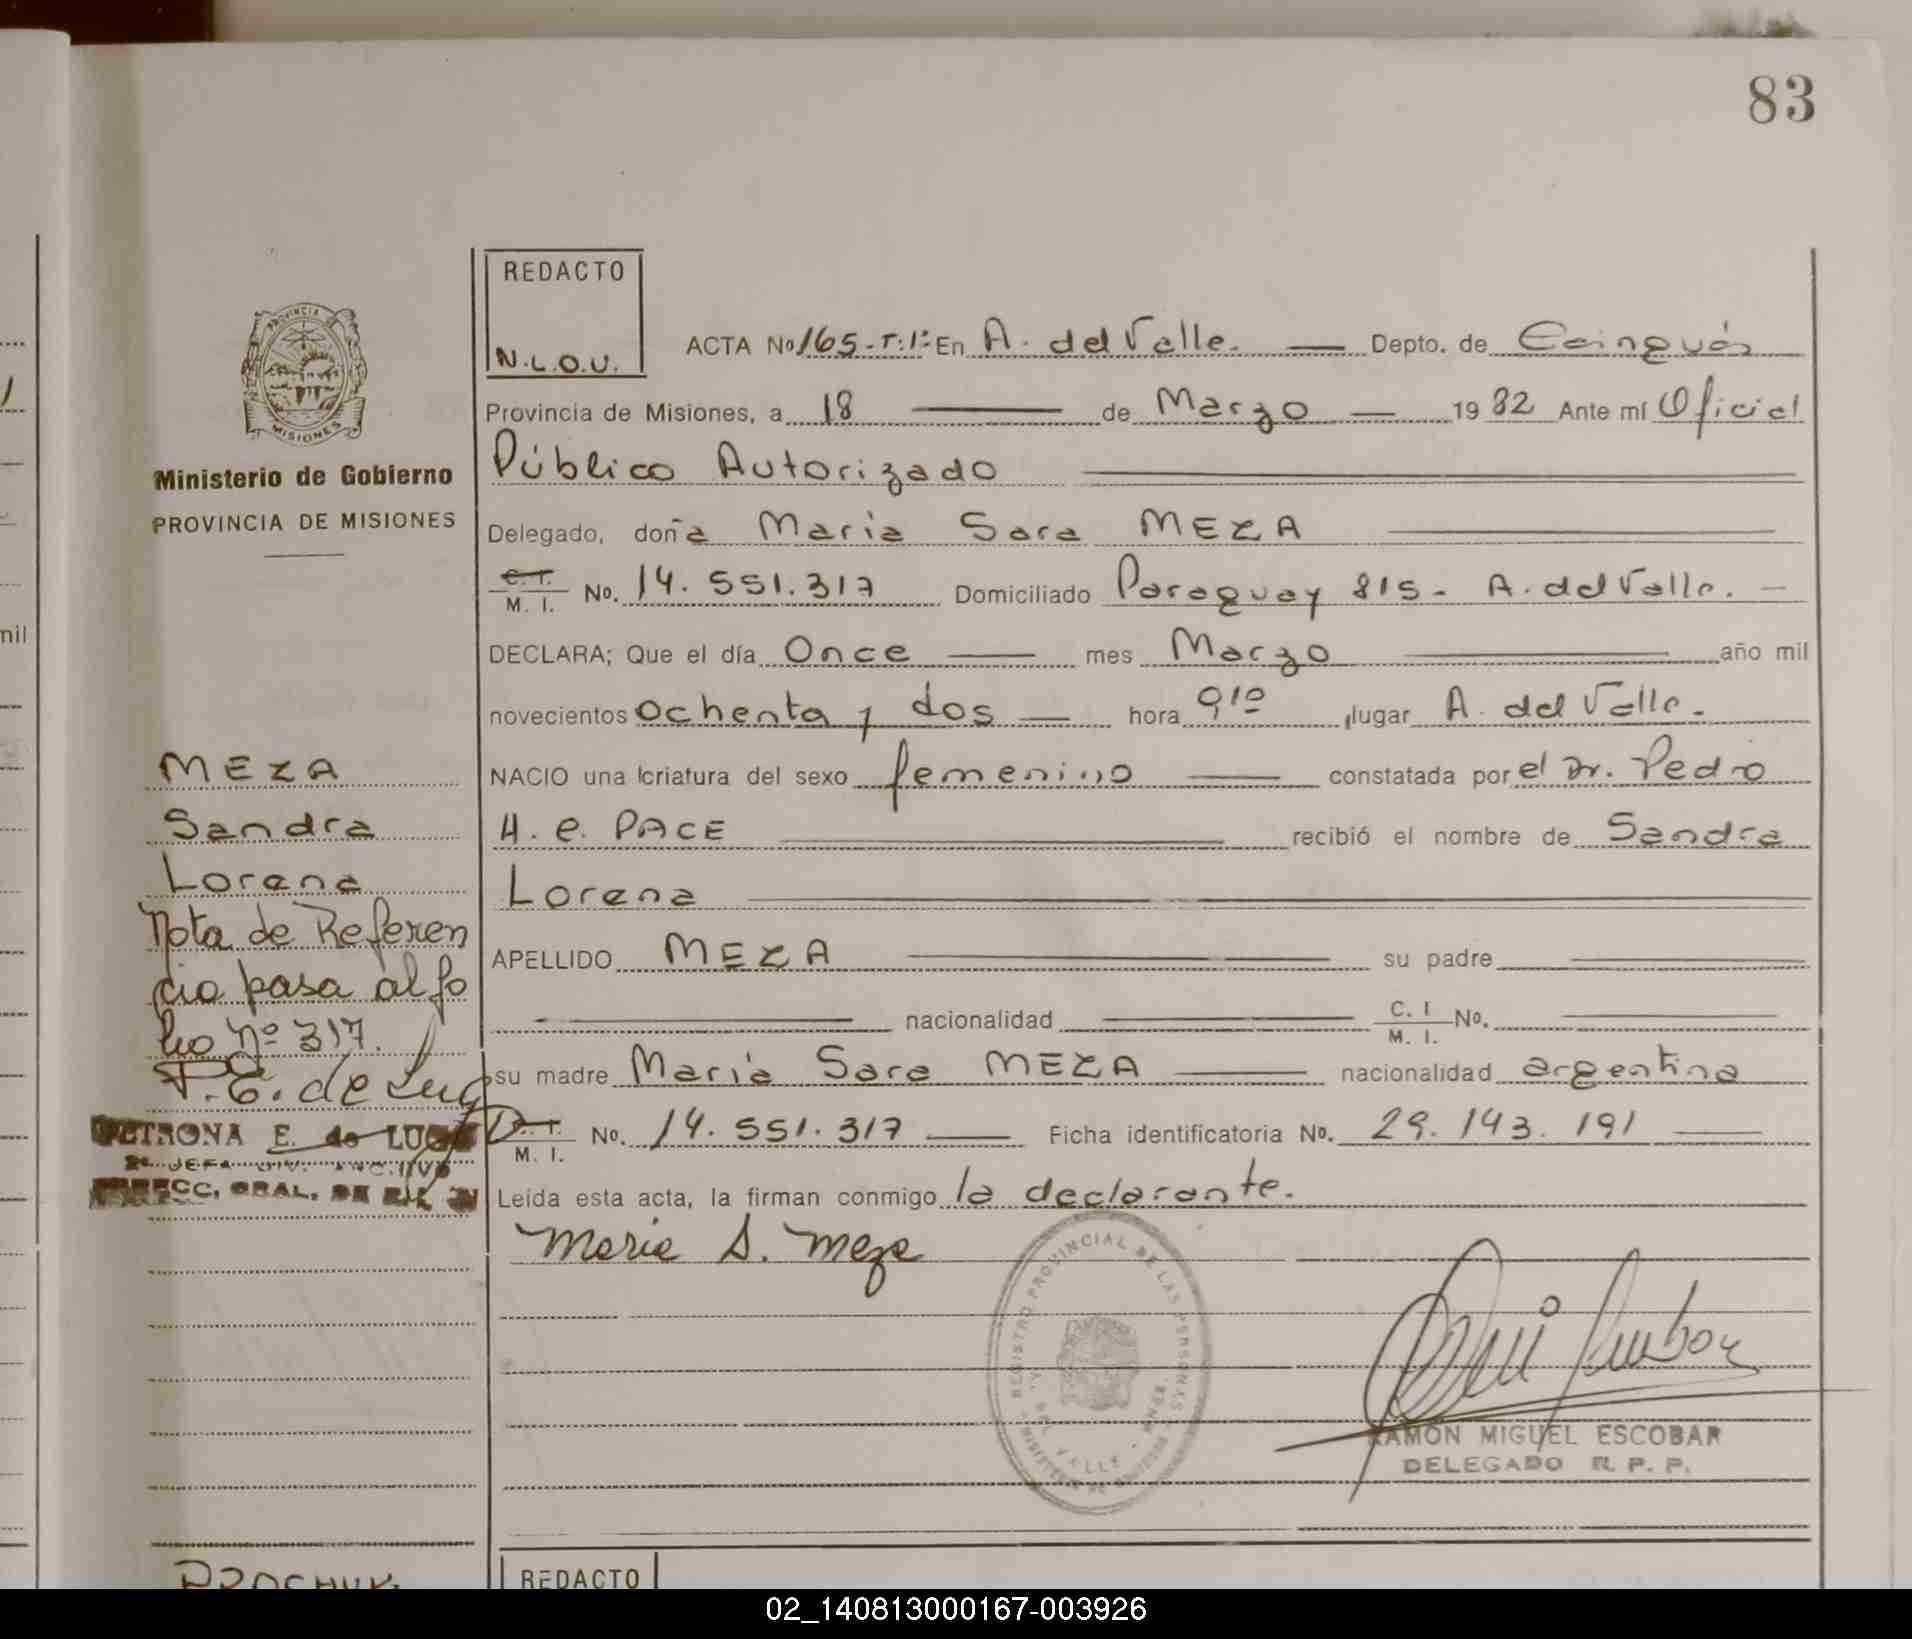 83
REDACTO
N.L.O.U.
PROVINCIA DE
MISIONES
Ministerio de Gobierno
PROVINCIA DE MISIONES
ACTA No 165-T:1º En A. del Valle. Depto. de Cainguás
Provincia de Misiones, a 18 de Marzo 1982 Ante mí Oficial
Público Autorizado
Delegado, doña Maria Sara MEZA
C. I.
M. I. No. 14.551.317 Domiciliado Paraguay 815- A. del Valle. -
DECLARA; Que el día Once mes Marzo año mil
novecientos ochenta y dos hora 9¹⁰ lugar A. del Valle.
NACIO una criatura del sexo femenino constatada por el Dr. Pedro
H. C. PACE recibió el nombre de Sandra
Lorena
APELLIDO MEZA su padre
nacionalidad C. I
M. I. No.
su madre Maria Sara MEZA nacionalidad argentina
C. I.
M. I. No. 14.551.317 Ficha identificatoria No. 29.143.191
Leída esta acta, la firman conmigo la declarante.
Maria S. Meza
MEZA
Sandra
Lorena
Nota de Referen
cia pasa al fo
lio nº 317.
P.E. de Lugo
PETRONA E. de LUGO
2ª JEFA DIV. ARCHIVO
DIRECC. GRAL. DE
REGISTRO PROVINCIAL DE LAS PERSONAS
DEL VALLE
RAMÓN MIGUEL ESCOBAR
DELEGADO R. P. P.
REDACTO
nil
02_140813000167-003926